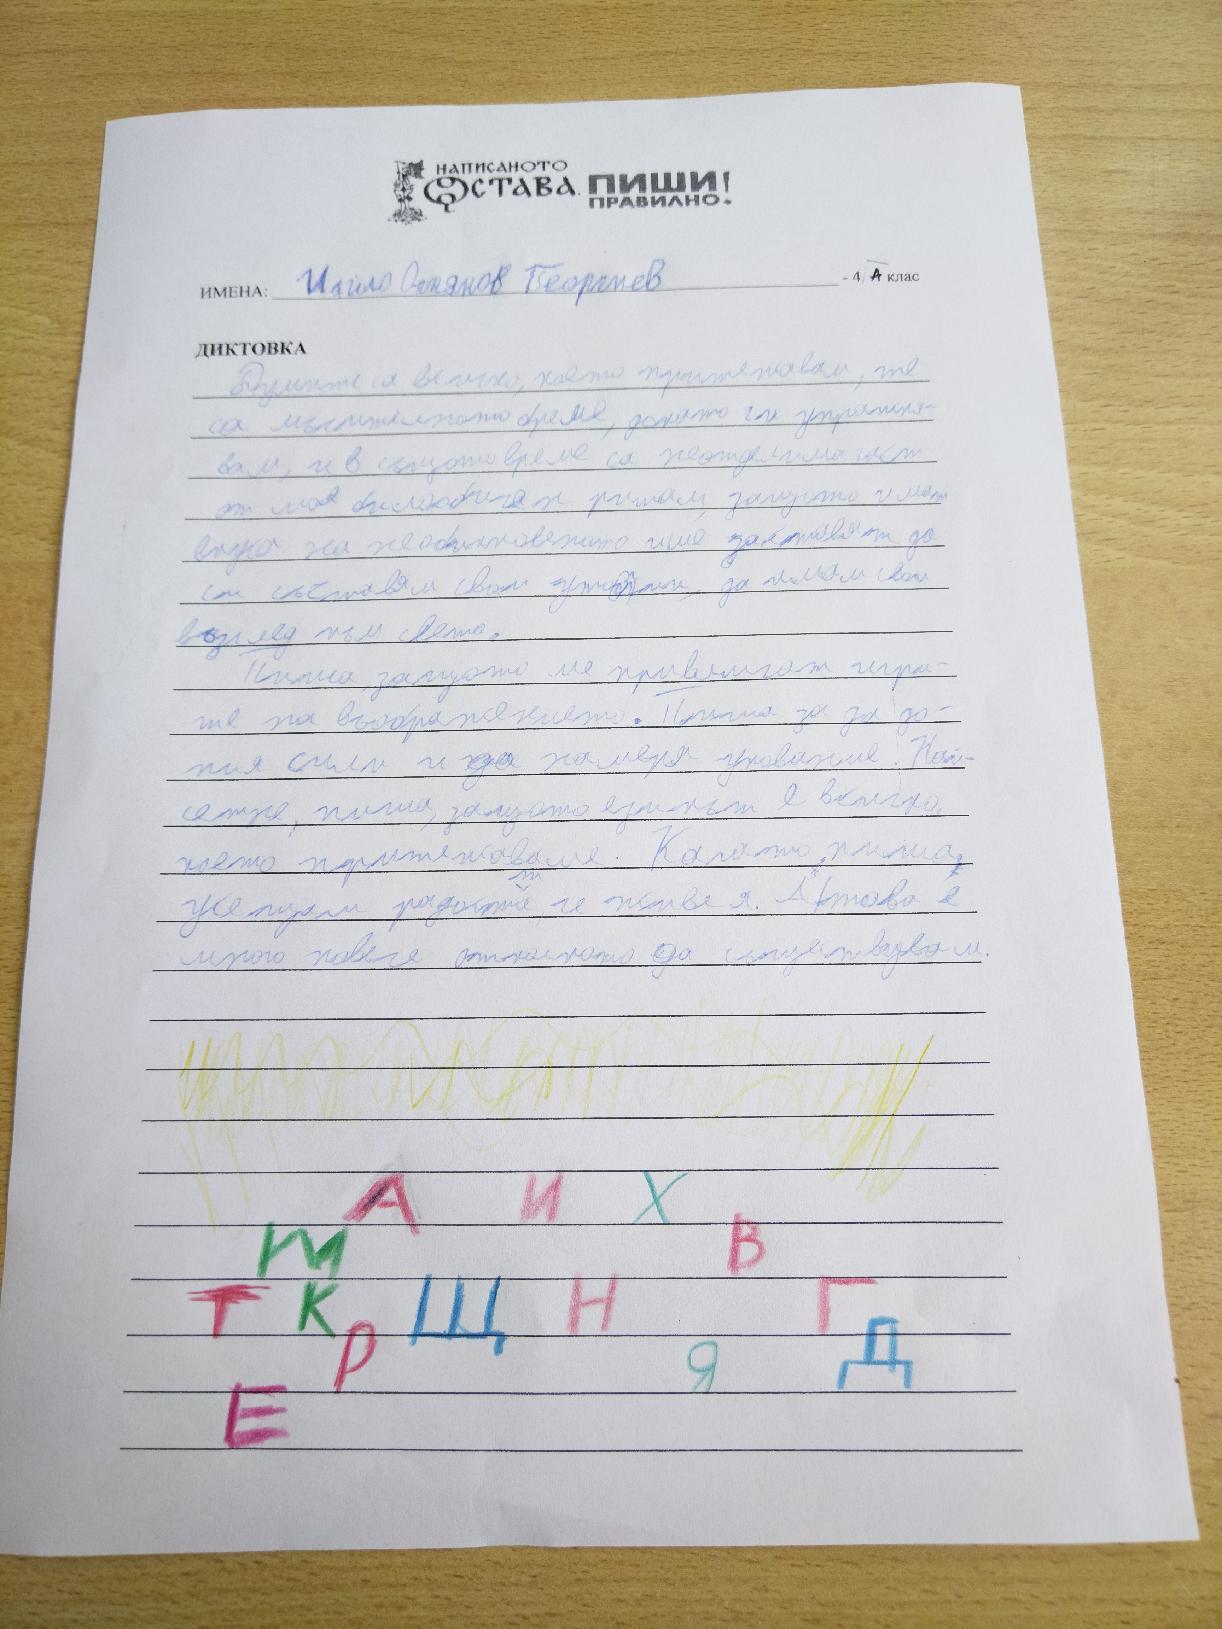 НАПИСАНОТО
ОСТАВА. ПИШИ
ПРАВИЛНО!
ИМЕНА: Ивайло Огнянов Георгиев - 4/А клас
ДИКТОВКА
Думите са всичко, което притежавам, те
са мъчителното време, докато ги упражня-
вам, и в същото време са неотделима част
от моя ритъм, защото имат
вкуса на необикновеното и ме заставят да
си съставям свои, да имам свои
възглед към света.
Пиша, защото ме привличат игри-
те на въображението. Пиша за да до-
бия сили и да намеря упование. Най-
сетне, пиша, защото езикът е всичко,
което притежаваме. Когато пиша,
усещам радостта, че живея. А това е
много повече отколкото да съществувам.
А И Х
М В
Т К Щ Н Г
Р Я Д
Е